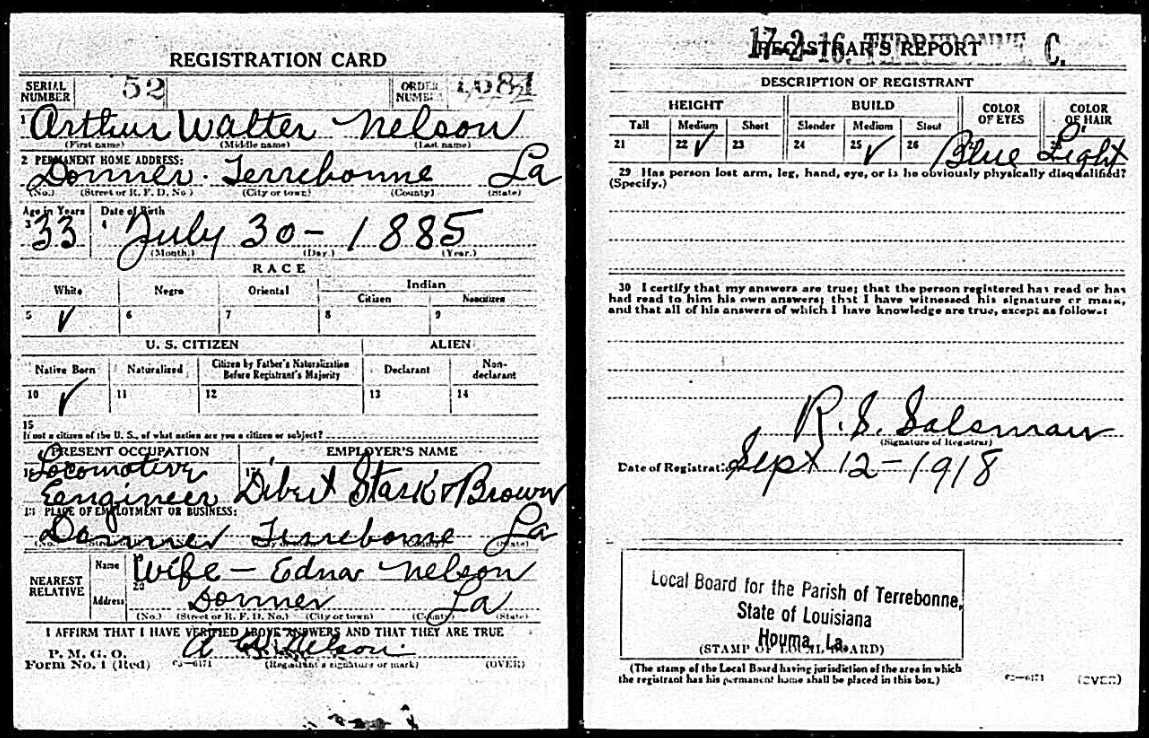 REGISTRATION CARD
SERIAL NUMBER 52 ORDER NUMBER
1 Arthur Walter Nelson
(First name) (Middle name) (Last name)
2 PERMANENT HOME ADDRESS:
Donner. Terrebonne La
(No.) (Street or R. F. D. No.) (City or town) (County) (State)
Age in Years Date of Birth
3 33 4 July 30 - 1885
(Month.) (Day.) (Year.)
RACE
White Negro Oriental Indian
Citizen Noncitizen
5 ✓ 6 7 8 9
U. S. CITIZEN ALIEN
Native Born Naturalized Citizen by Father's Naturalization Before Registrant's Majority Declarant Non-declarant
10 ✓ 11 12 13 14
15
If not a citizen of the U. S., of what nation are you a citizen or subject?
PRESENT OCCUPATION EMPLOYER'S NAME
16 Locomotive
Eengineer 17 Dibert Stark & Brown
18 PLACE OF EMPLOYMENT OR BUSINESS:
Donner Terrebonne La
(No.) (County) (State)
NEAREST RELATIVE Name Wife - Edna Nelson
20 Address Donner La
(No.) (Street or R. F. D. No.) (City or town) (County) (State)
I AFFIRM THAT I HAVE VERIFIED ABOVE ANSWERS AND THAT THEY ARE TRUE
A W Nelson.
P. M. G. O.
Form No. 1 (Red) (Registrant's signature or mark) (OVER)
17-2-16. TERREBONNE C.
REGISTRAR'S REPORT
DESCRIPTION OF REGISTRANT
HEIGHT BUILD COLOR OF EYES COLOR OF HAIR
Tall Medium Short Slender Medium Stout
21 22 ✓ 23 24 25 ✓ 26 Blue Light
29 Has person lost arm, leg, hand, eye, or is he obviously physically disqualified?
(Specify.)
30 I certify that my answers are true; that the person registered has read or has
had read to him his own answers; that I have witnessed his signature or mark,
and that all of his answers of which I have knowledge are true, except as follows:
R. S. Salsman
(Signature of Registrar)
Date of Registration Sept 12 - 1918
Local Board for the Parish of Terrebonne,
State of Louisiana
Houma, La.
(STAMP OF LOCAL BOARD)
(The stamp of the Local Board having jurisdiction of the area in which
the registrant has his permanent home shall be placed in this box.)
(OVER)